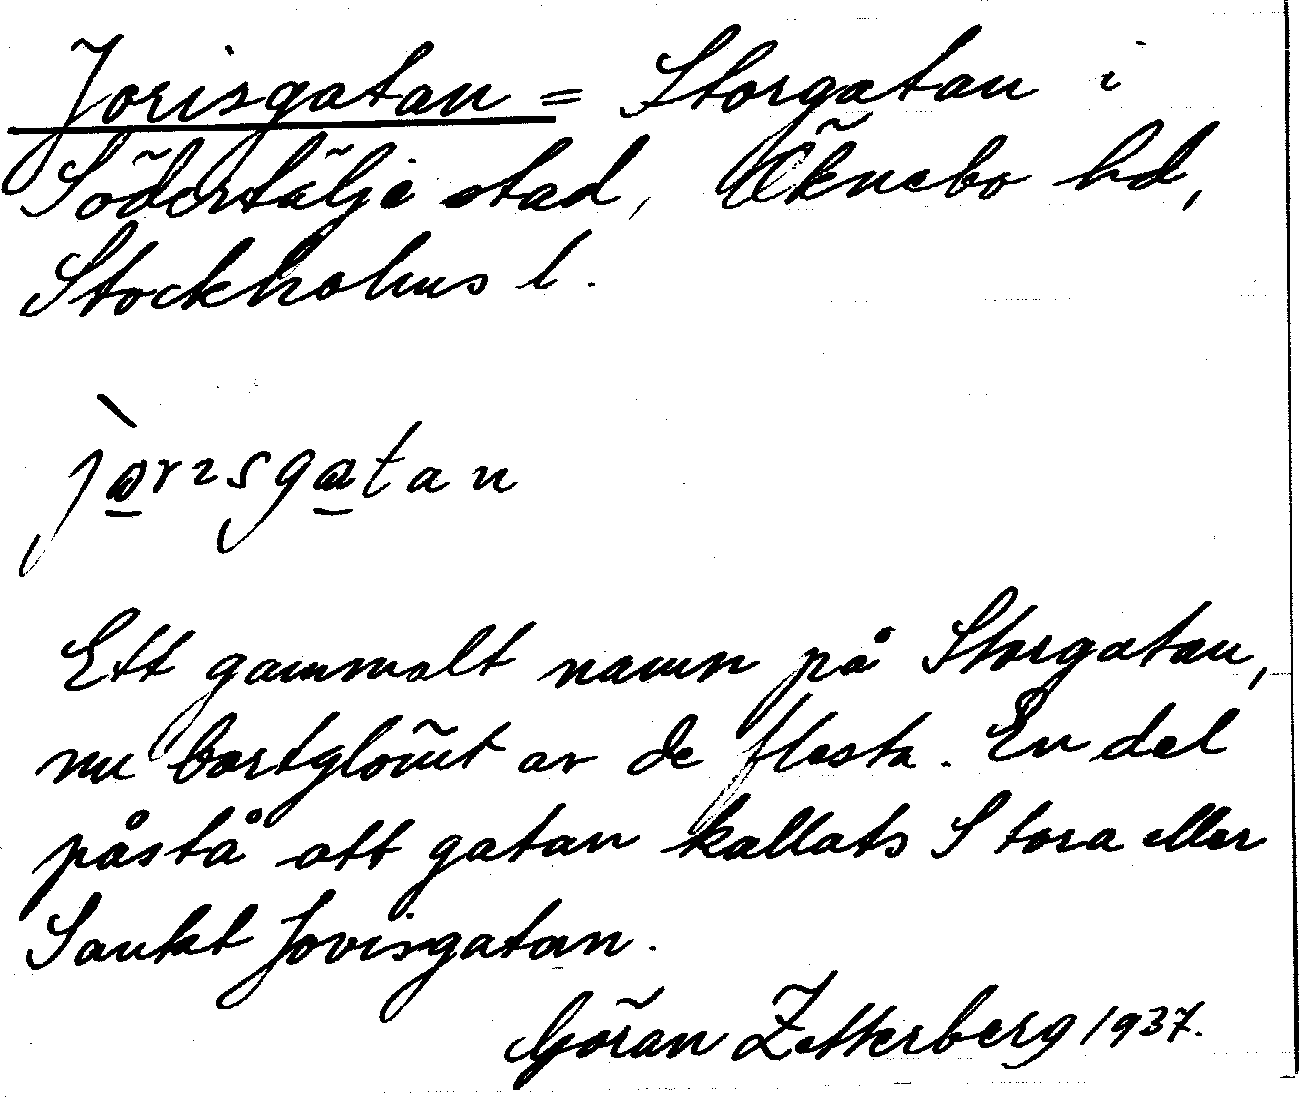 Jorisgatan = Storgatan i
Södertälje stad, Öknebo hd,
Stockholms l.
Ett gammalt namn på Storgatan,
nu bortglömt av de flesta. En del
påstå att gatan kallats Stora eller
Sankt Jorisgatan.
Göran Zetterberg 1937.